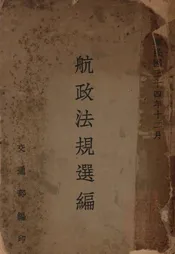 十四年十二月
航政法規選編
交通部編印